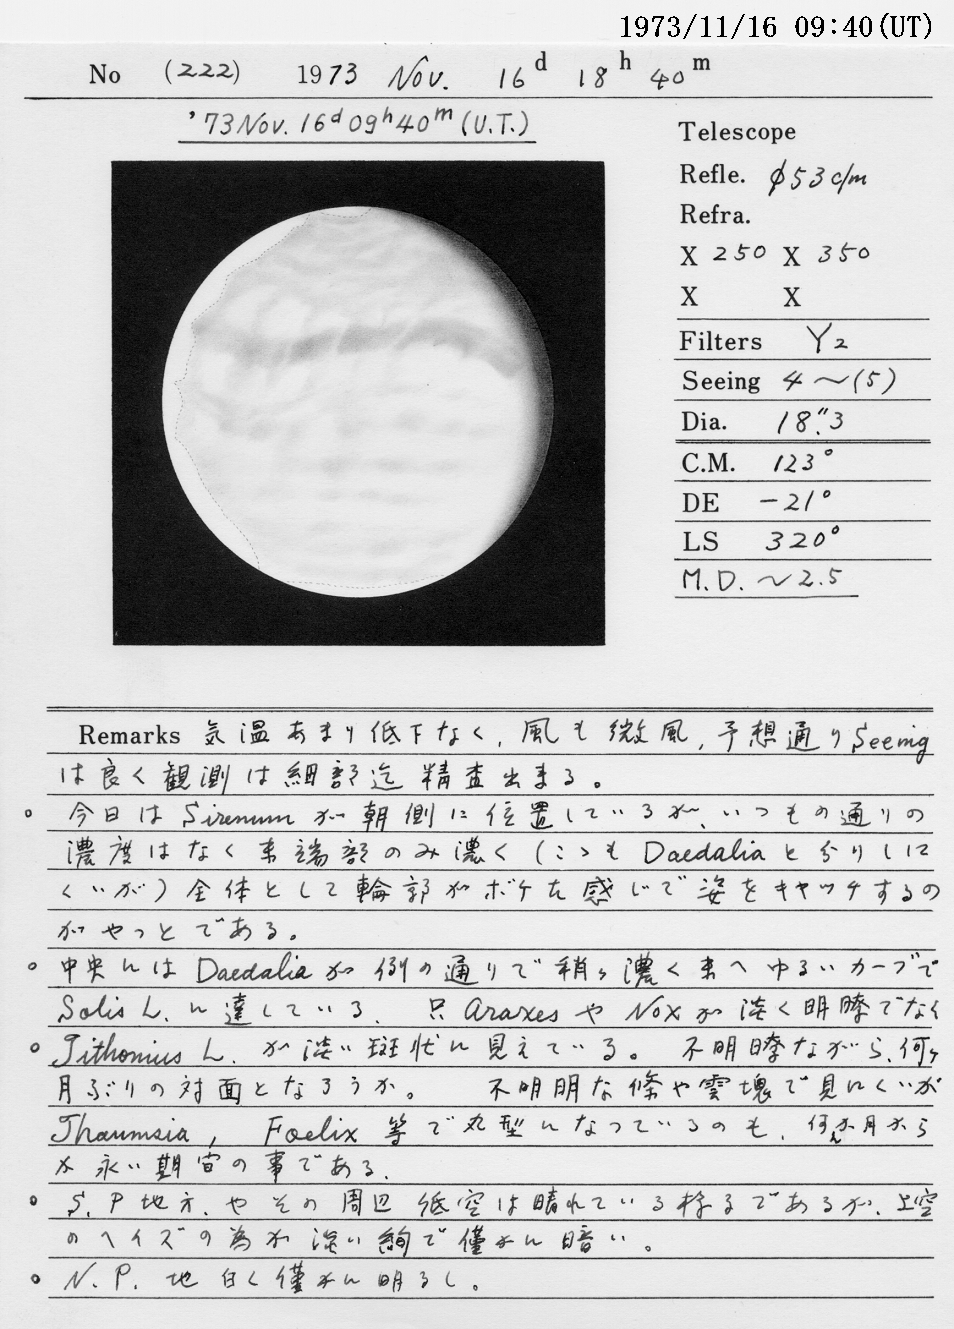 1973/11/16 09:40(UT)
No (222) 1973 Nov. 16d 18h 40m
'73 Nov. 16d 09h 40m (U.T.)
Telescope
Refle. φ53 c/m
Refra.
X 250 X 350
X X
Filters Y2
Seeing 4～(5)
Dia. 18."3
C.M. 123°
DE －21°
LS 320°
M.D. ～2.5
Remarks 気温あまり低下なく、風も微風、予想通りSeeing
は良く観測は細部迄精査出来る。
○ 今日はSirenumが朝側に位置しているが、いつもの通りの
濃度はなく東端部のみ濃く(こゝもDaedaliaと分りしに
くいが)全体として輪郭がボケた感じで姿をキャッチするの
がやっとである。
○ 中央にはDaedaliaが例の通りで稍々濃く東へゆるいカーブで
Solis L.に達している。 只AraxesやNoxが淡く明瞭でなく
○ Tithonius L. が淡い斑状に見えている。 不明瞭ながら、何ヶ
月ぶりの対面となろうか。 不明な條や雲塊で見にくいが
Thaumsia, Foelix 等で丸型になっているのも、何か月から
か永い期間の事である。
○ S.P地方、やその周辺 低空は晴れている様るであるが、上空
のヘイズの為か淡い絢で僅かに暗い。
○ N.P. 地白く僅かに明るし。